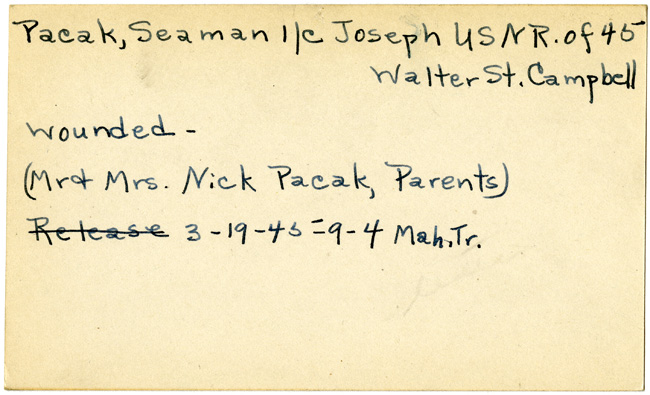 Pacak, Seaman 1/c Joseph USNR. of 45
Walter St. Campbell
wounded -
(Mr & Mrs. Nick Pacak, Parents)
Release 3-19-45 = 9-4 Mah. Tr.